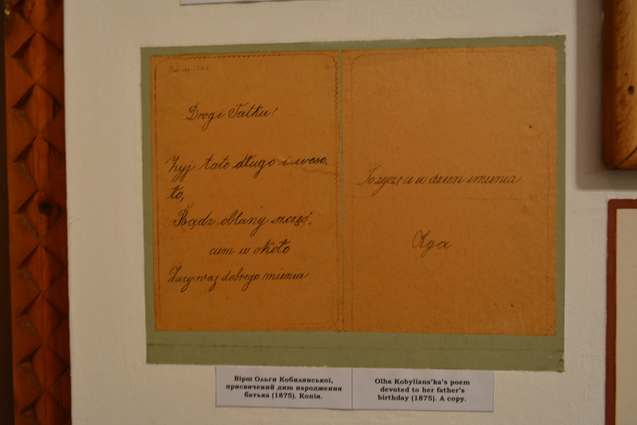 Drogi Tatku!
Żyj tato długo i weso-
ło,
Bądź oblany szczęś-
ciem w około
Zazywaj dobrego mienia
w dzien imienia
Olga
Вірш Ольги Кобилянської,
присвячений дню народження
батька (1875). Копія.
Olha Kobylians'ka's poem
devoted to her father's
birthday (1875). A copy.